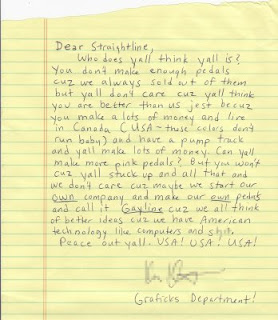 Dear Straightline,
Who does yall think yall is?
You don't make enough pedals
cuz we always sold out of them
but yall don't care cuz yall think
you are better than us jest becuz
you make a lots of money and live
in Canada (USA - those colors don't
run baby) and have a pump track
and yall make lots of money. Can yall
make more pink pedals? But you won't
cuz yall stuck up and all that and
we don't care cuz maybe we start our
own company and make our own pedals
and call it Gayline cuz we all think
of better ideas cuz we have American
technology like computers and shit.
Peace out yall. USA! USA! USA!
Graficks Department!